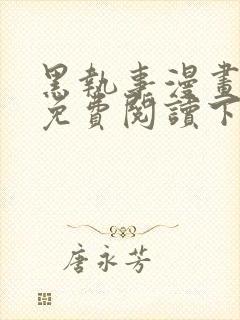 黑執事漫畫
免費閱讀下
唐永芳